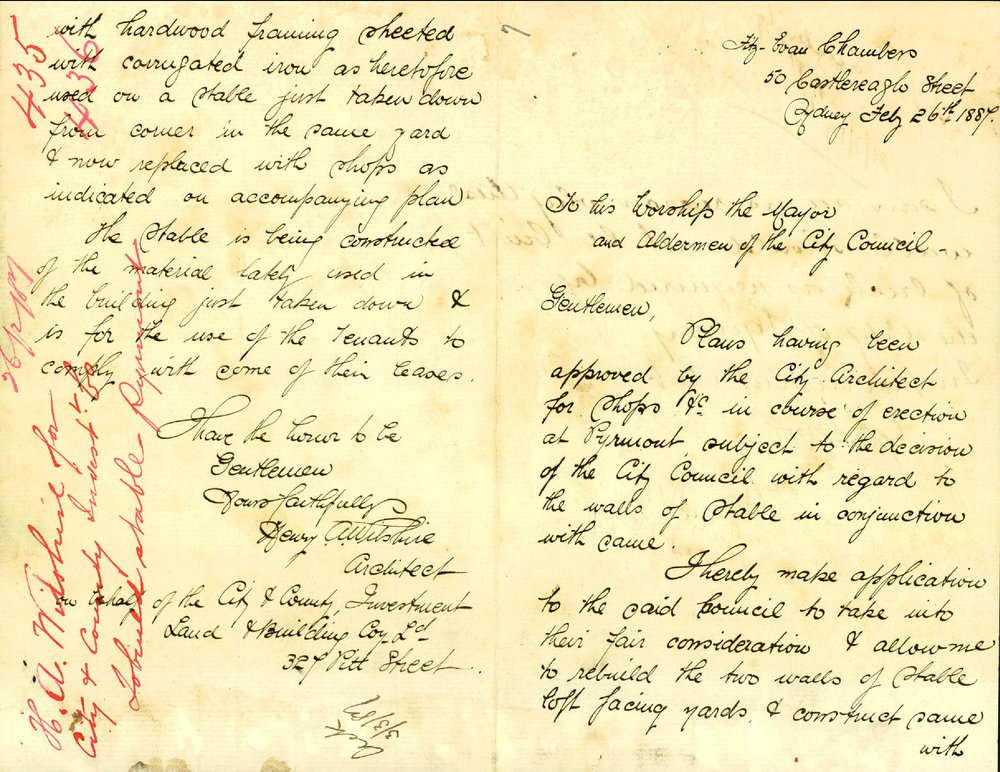 7
Fitz-Evan Chambers
50 Castlereagh Street
Sydney Feby 26th 1887.
To his Worship the Mayor
and Aldermen of the City Council -
Gentlemen,
Plans having been
approved by the City Architect
for shops &c in course of erection
at Pyrmont, subject to the decision
of the City Council with regard to
the walls of stable in conjunction
with same.
I hereby make application
to the said Council to take into
their fair consideration & allow me
to rebuild the two walls of stable
loft facing yards, & construct same
with
with hardwood framing sheeted
with corrugated iron as heretofore
used on a stable just taken down
from corner in the same yard
& now replaced with shops as
indicated on accompanying plan
The stable is being constructed
of the material lately used in
the building just taken down &
is for the use of the tenants to
comply with some of their leases.
I have the honor to be
Gentlemen
Yours faithfully
Henry A. Wilshire
Architect
on behalf of the City & County Investment
Land & Building Coy Ld
327 Pitt Street.
Ack
3/3/87
435
436
26/2/87
H. A. Wilshire for
City & County Invest.t &c
To build stable Pyrmont